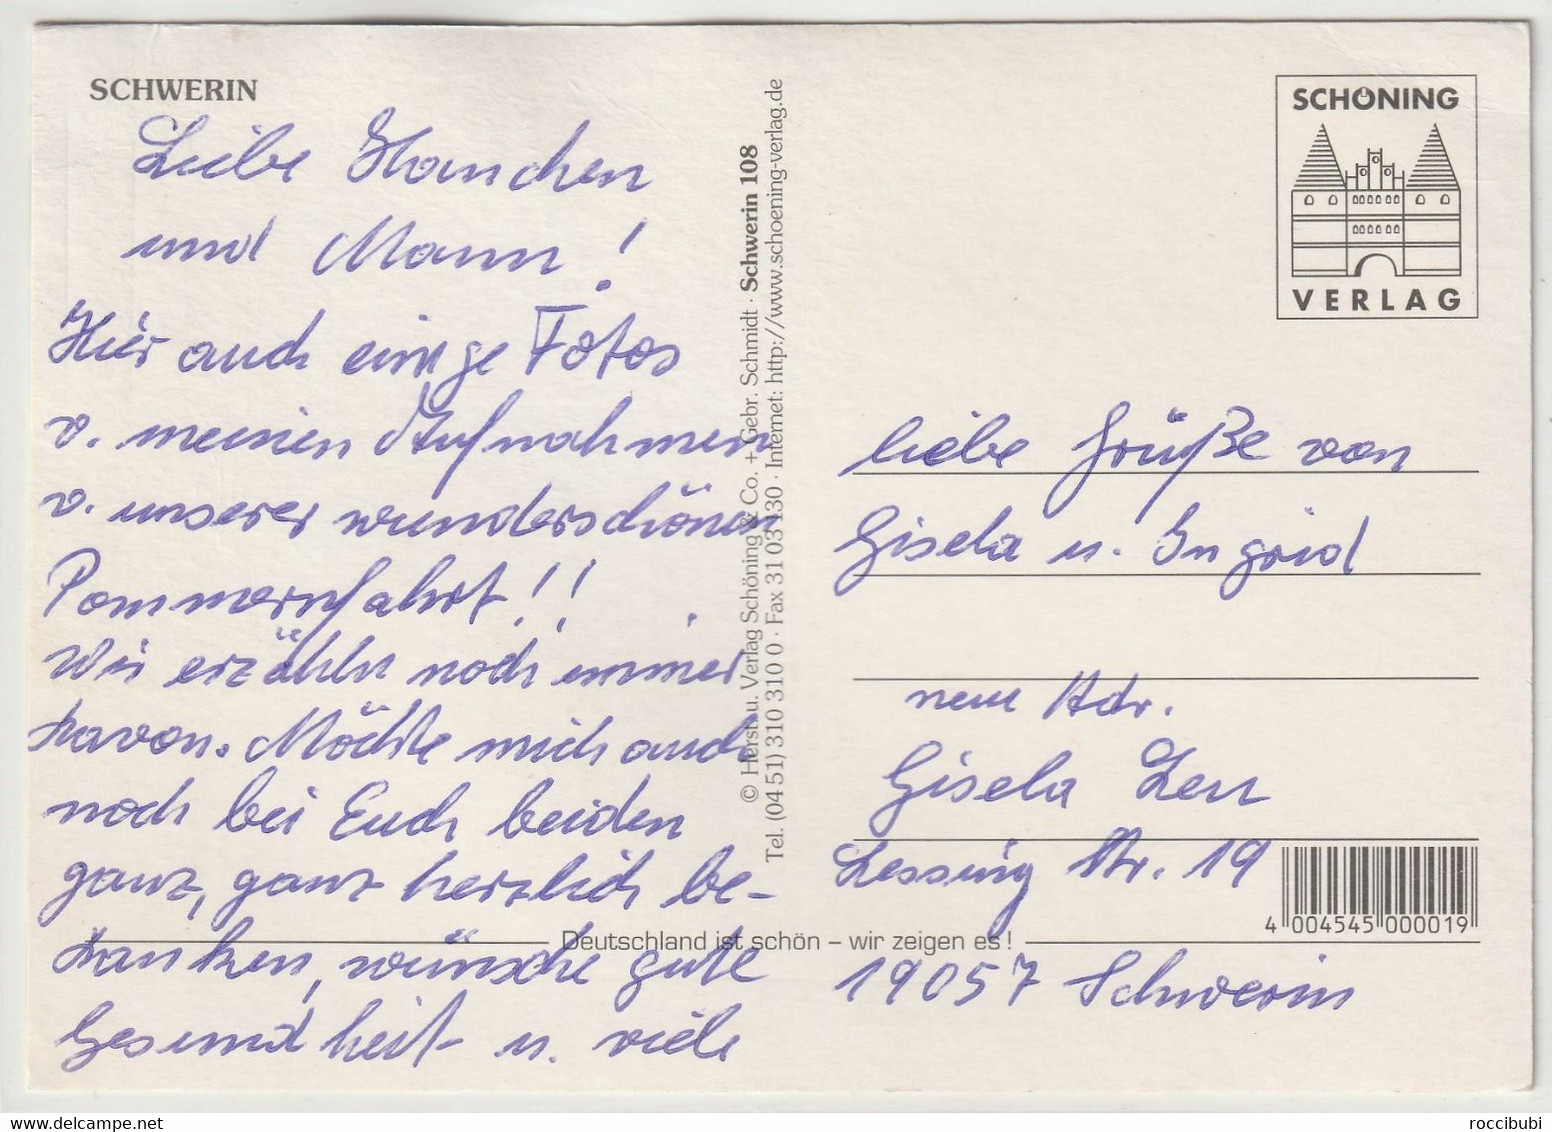 SCHWERIN
Liebe Hannchen
und Mann!
Hier auch einige Fotos
v. meinen Aufnahmen
v. unserer wunderschönen
Pommernfahrt!!
Wir erzähln noch immer
davon. Möchte mich auch
noch bei Euch beiden
ganz, ganz herzlich be-
danken, wünsche gute
Gesundheit u. viele
© Herst. u. Verlag Schöning & Co. + Gebr. Schmidt · Schwerin 108
Tel. (04 51) 310 310 0 · Fax 31 03 130 · Internet: http://www.schoening-verlag.de
SCHÖNING
VERLAG
liebe Grüße von
Gisela u. Ingrid
neue Adr.
Gisela
Lessing Str. 19
4 004545 000019
Deutschland ist schön – wir zeigen es!
19057 Schwerin
roccibubi